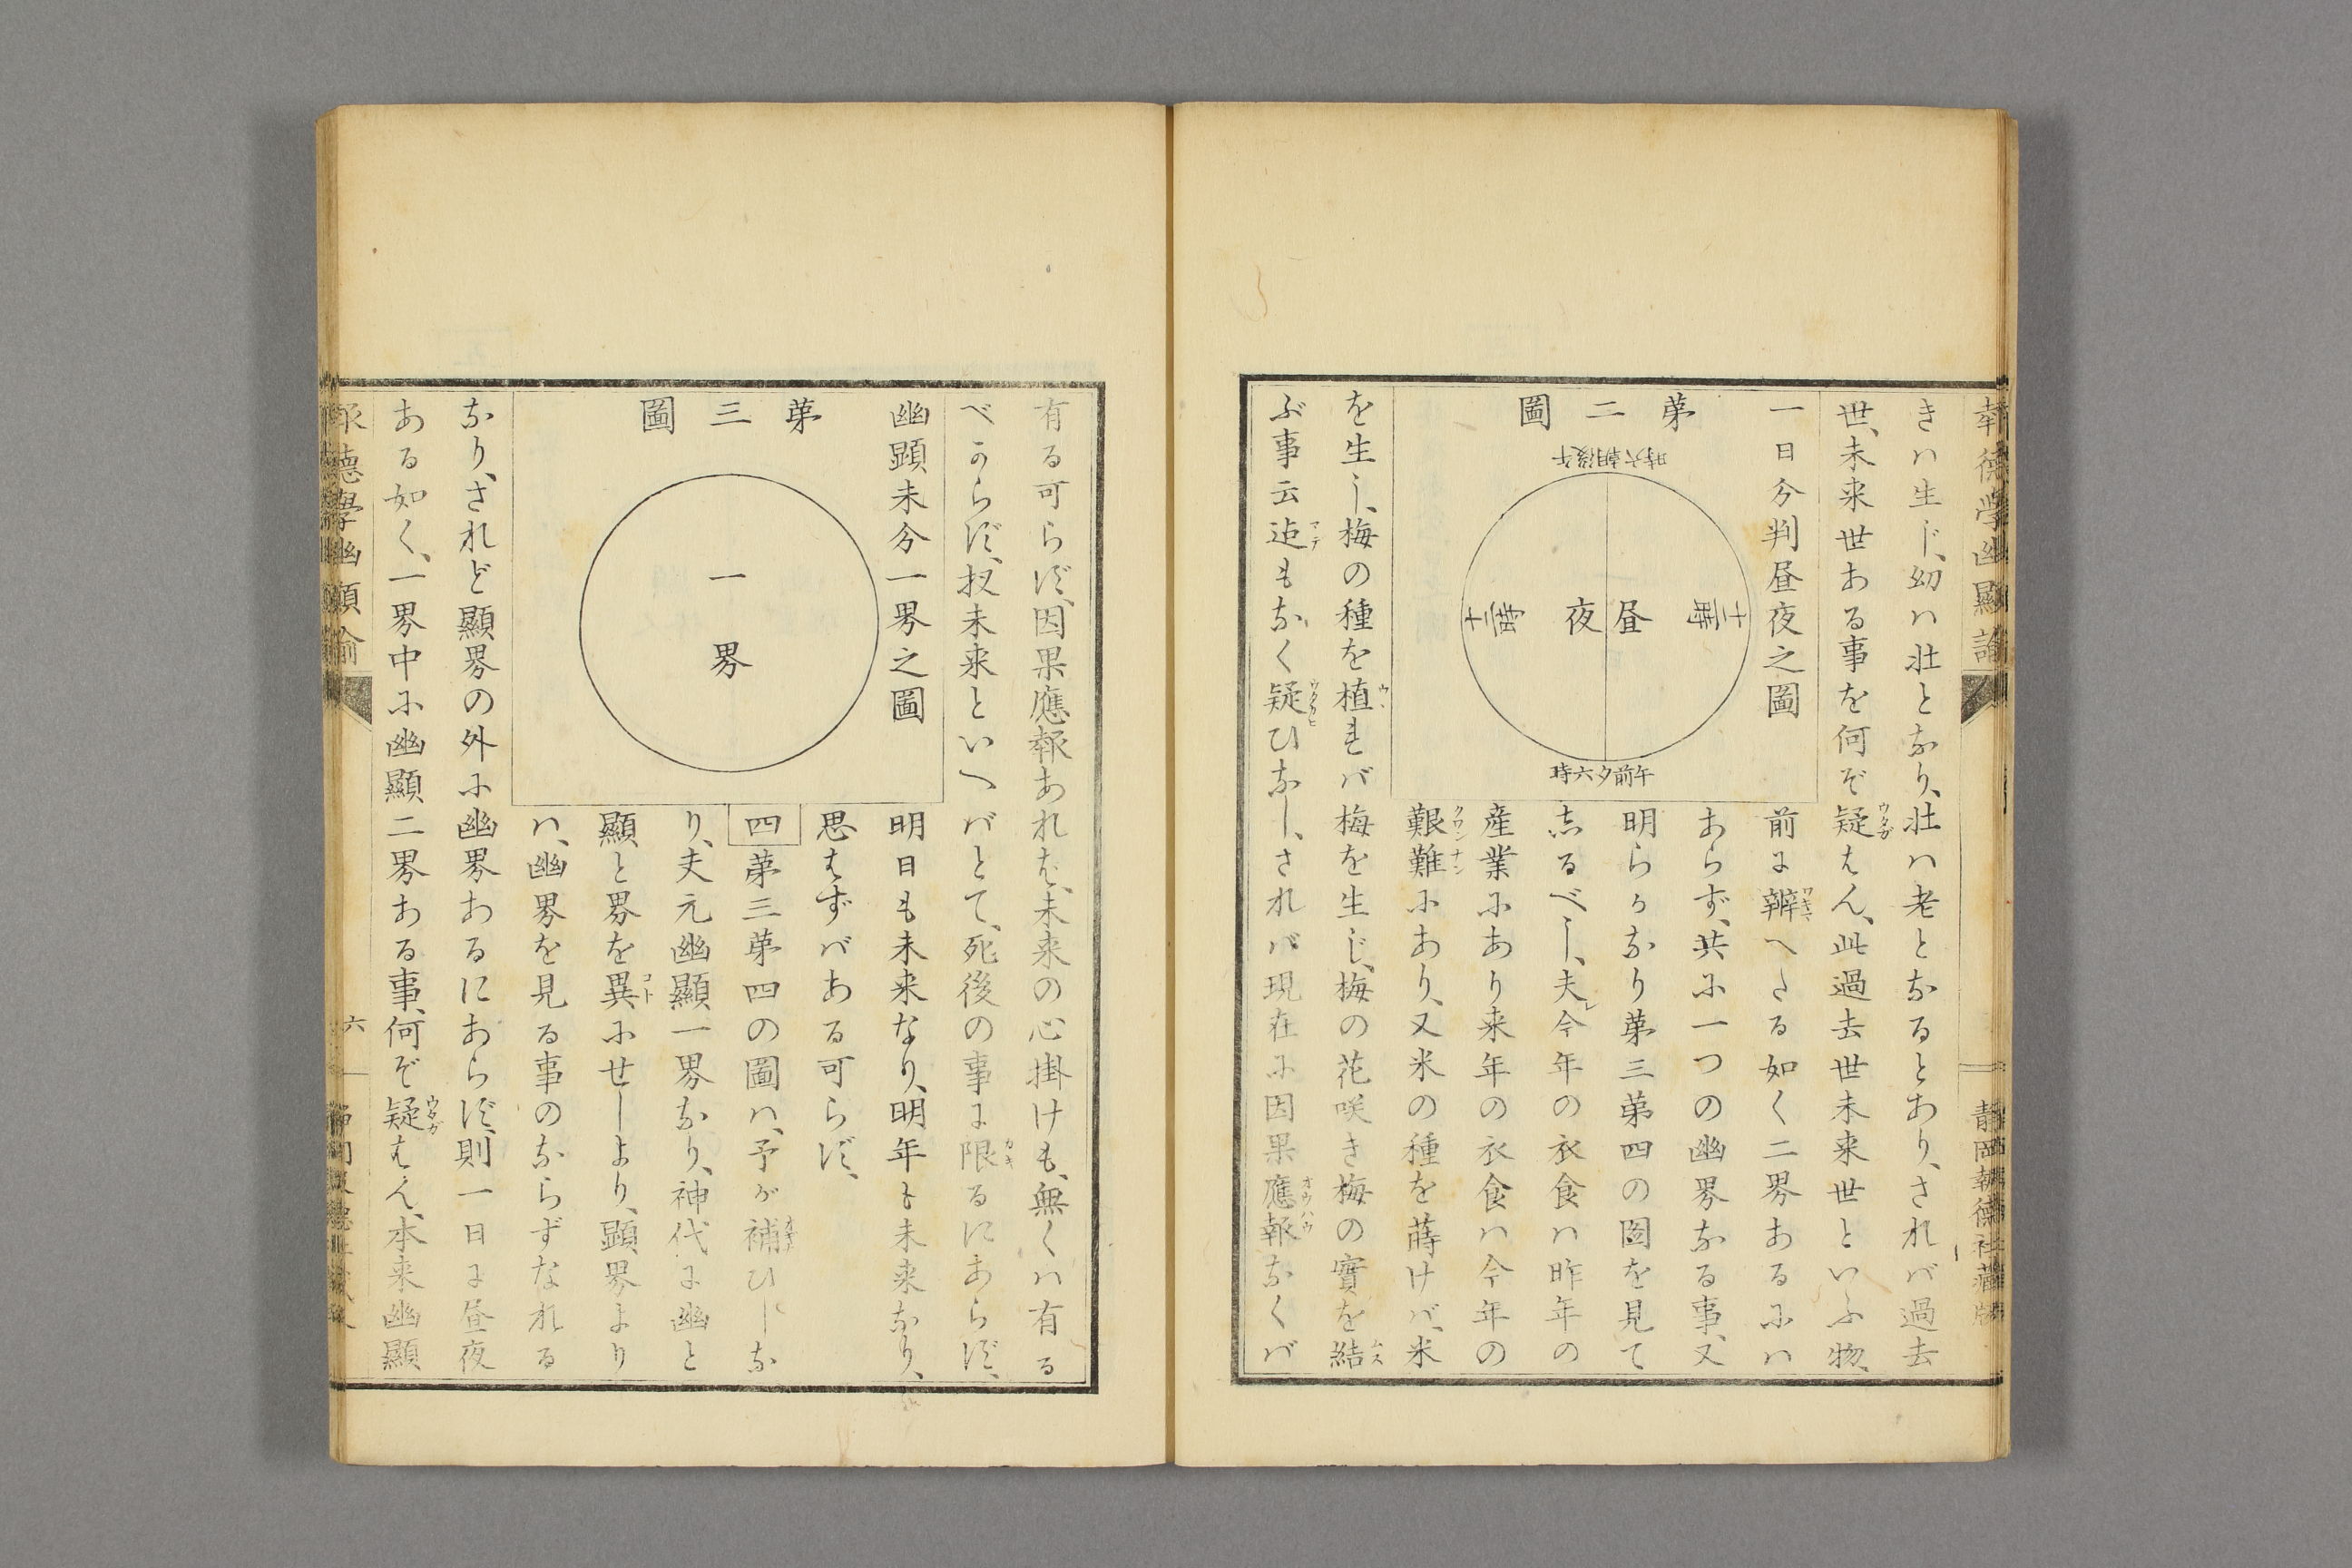 報徳學幽顯論
靜岡報德社藏版
きハ生じ、幼ハ壮となり、壮ハ老となるとあり、されバ過去
世、未来世ある事を何ぞ疑はん、此過去世未来世といふ物、
ウタガ
第二圖
一日分判昼夜之圖
午後朝六時
十二時
昼
夜
十二時
午前夕六時
前に辨へたる如く二界あるにハ
ワキマ
あらず、共に一つの幽界なる事、又
明らかなり第三第四の圖を見て
志るべし、夫レ今年の衣食ハ昨年の
産業にあり来年の衣食ハ今年の
艱難にあり、又米の種を蒔けバ、米
クワンナン
を生し、梅の種を植れバ梅を生じ、梅の花咲き梅の實を結
ウヽ
ムス
ぶ事云迠もなく疑ひなし、されバ現在に因果應報なくバ
マデ
ウタカヒ
オウハウ
有る可らず、因果應報あれば、未来の心掛けも、無くハ有る
べからず、扨未来といへバとて、死後の事に限るにあらず、
カギ
第三圖
幽顕未分一界之圖
一界
明日も未来なり、明年も未来なり、
思はずバある可らず、
四
第三第四の圖ハ、予が補ひしな
り、夫元幽顯一界なり、神代に幽と
顯と界を異にせしより、顕界より
コト
ハ、幽界を見る事のならずなれる
なり、されど顯界の外に幽界あるにあらず、則一日に昼夜
ある如く、一界中に幽顯二界ある事、何ぞ疑はん、本来幽顯
ウタガ
報德學幽顯論
六